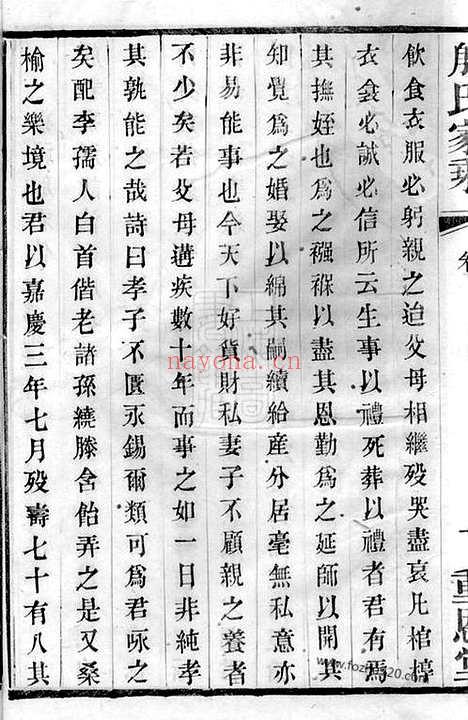 飲食衣服必躬親之迨父母相繼歿哭盡哀凡棺椁
衣衾必誠必信所云生事以禮死葬以禮者君有焉
其撫姪也為之襁褓以盡其恩勤為之延師以開其
知覺為之婚娶以綿其嗣續給產分居毫無私意亦
非易能事也今天下好貨財私妻子不顧親之養者
不少矣若父母遘疾數十年而事之如一日非純孝
其孰能之哉詩曰孝子不匱永錫爾類可為君咏之
矣配李孺人白首偕老諸孫繞膝含飴弄之是又桑
榆之樂境也君以嘉慶三年七月歿壽七十有八其
nayona.cn